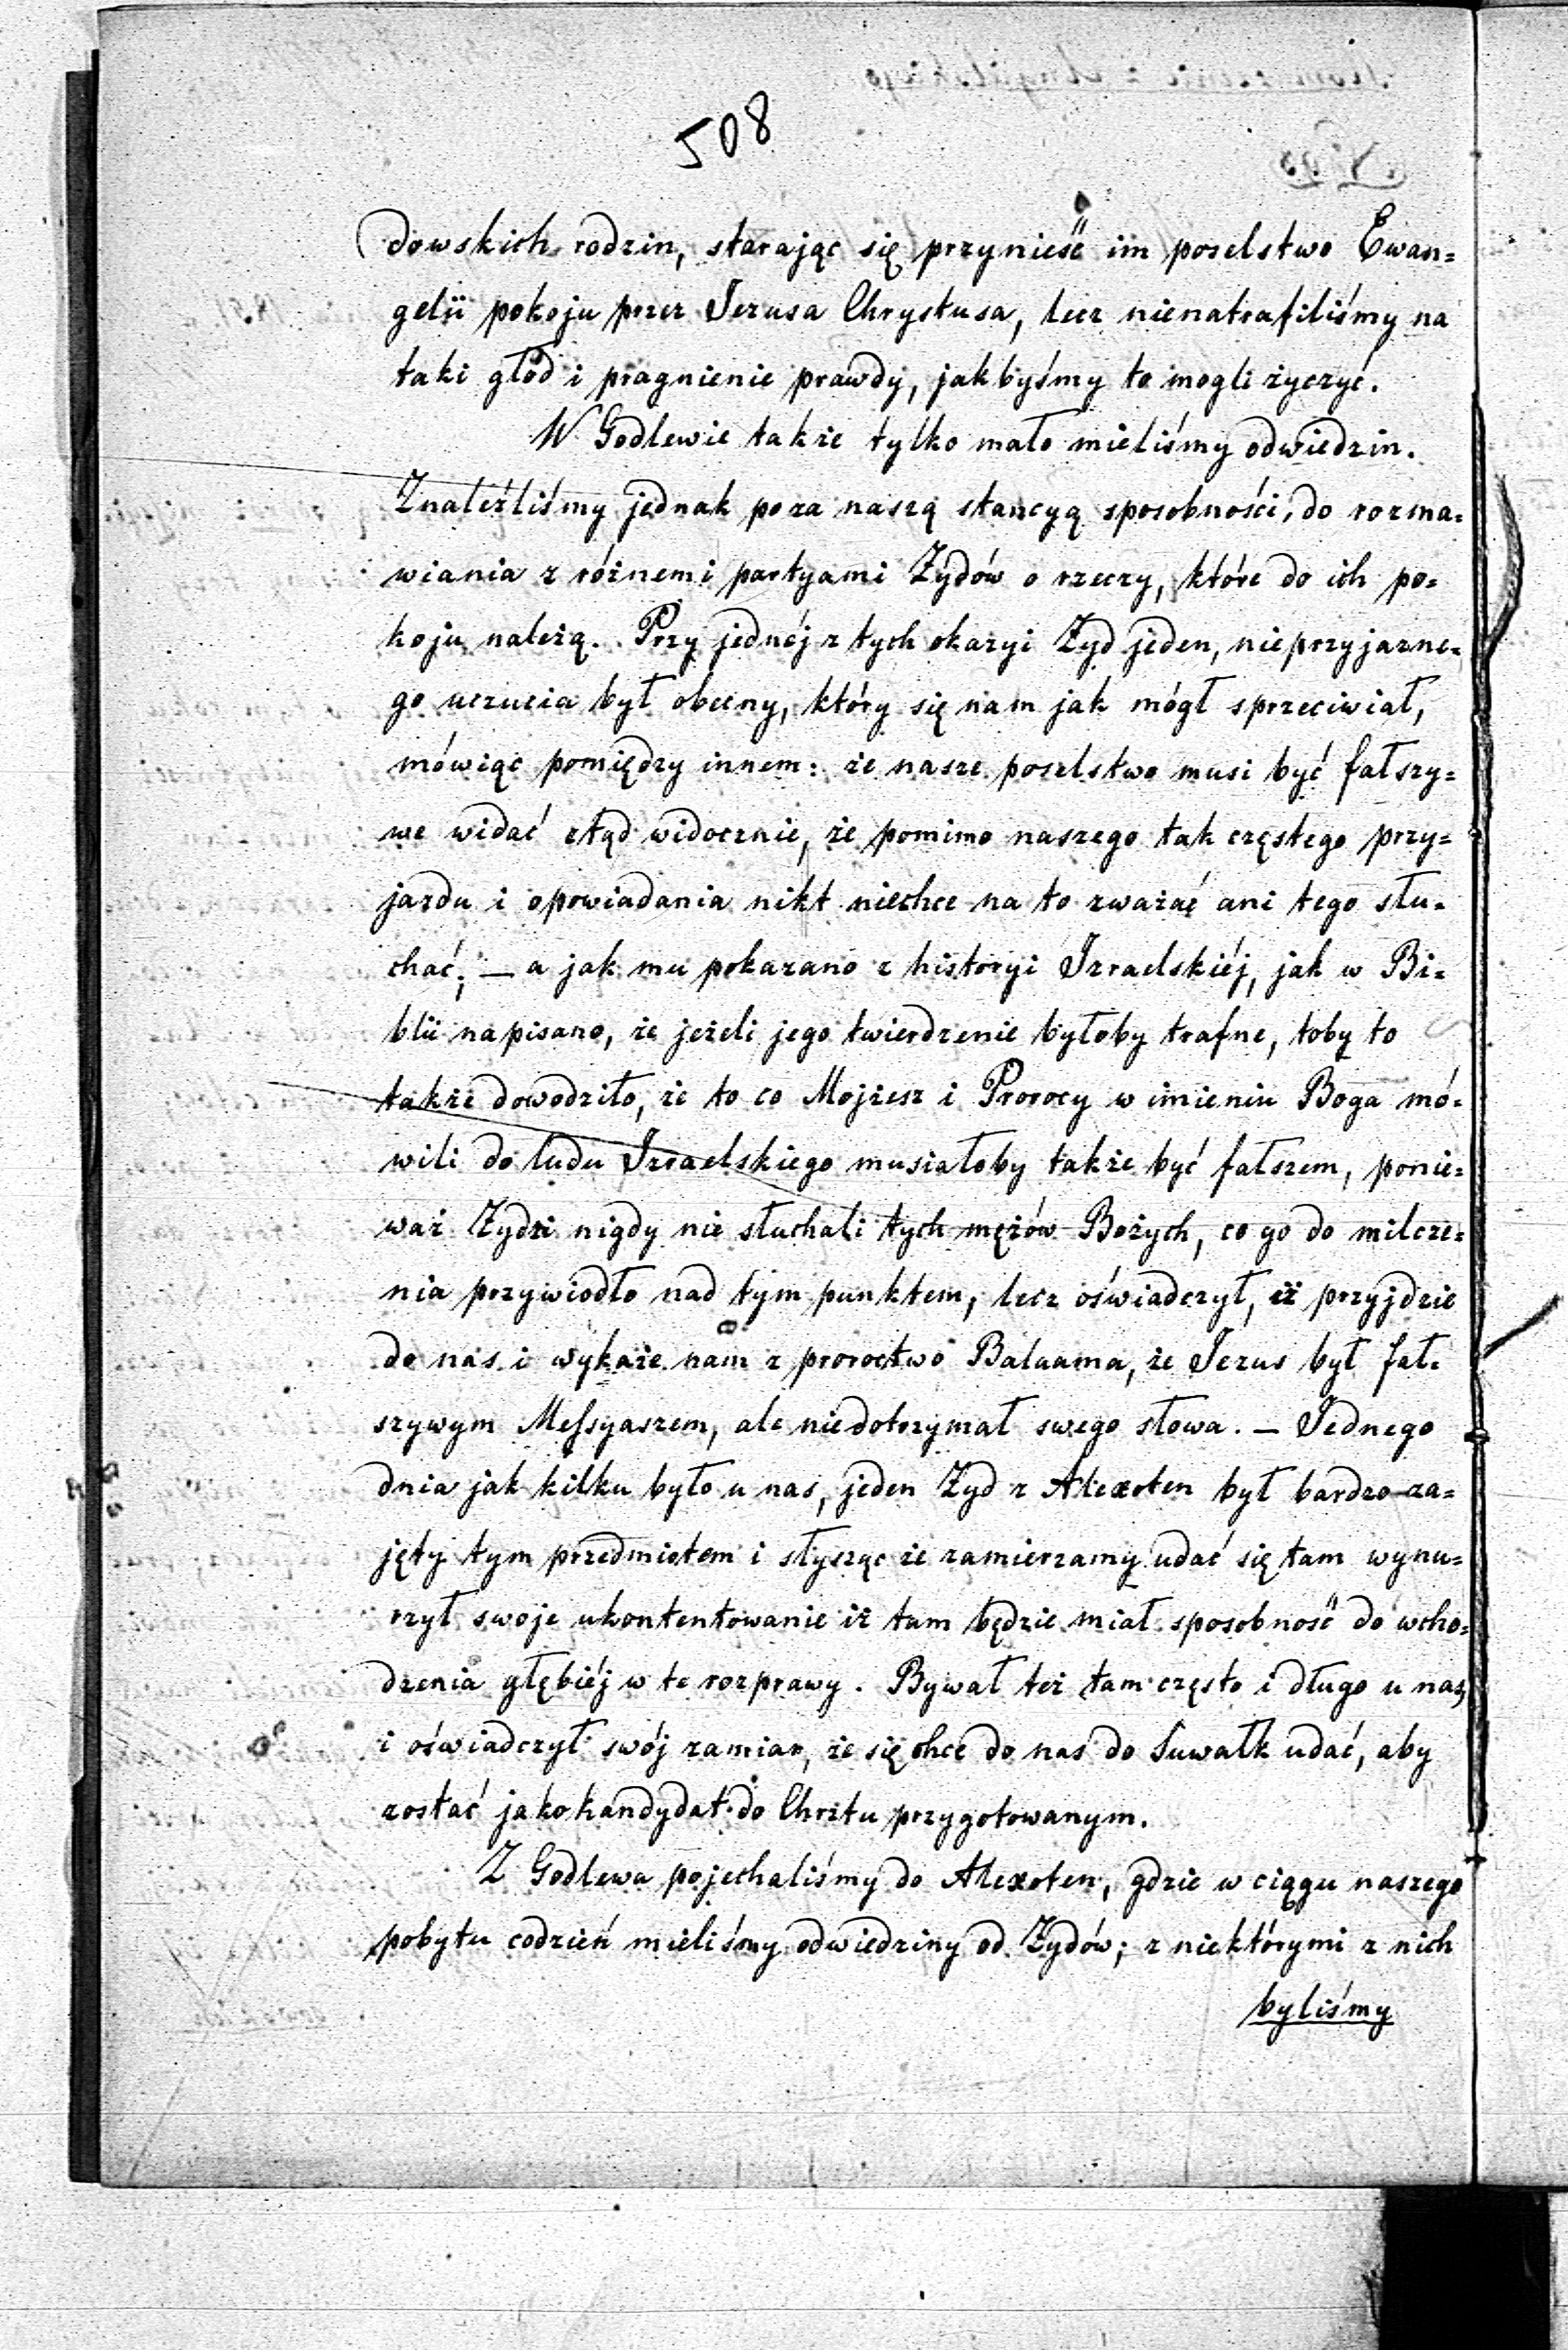 508
dowskich rodzin, starając się przynieść im poselstwo Ewan=
gelii pokoju przez Jezusa Chrystusa, lecz nienatrafiliśmy na
taki głód i pragnienie prawdy, jakbyśmy to mogli życzyć.
W Godlewie także tylko mało mieliśmy odwiedzin.
Znaleźliśmy jednak poza naszą stancyą sposobności, do rozma=
wiania z różnemi partyami Żydów o rzeczy, które do ich po=
koju należą. Przy jednéj z tych okazyi Żyd jeden, nieprzyjazne=
go uczucia był obecny, który się nam jak mógł sprzeciwiał,
mówiąc pomiędzy innem: że nasze poselstwo musi być fałszy=
we widać ztąd widocznie, że pomimo naszego tak częstego przy=
jazdu i opowiadania nikt niechce na to zważać ani tego słu=
chać; — a jak mu pokazano z historyi Izraelskiéj, jak w Bi=
blii napisano, że jeżeli jego twierdzenie byłoby trafne, toby to
także dowodziło, że to co Mojżesz i Prorocy w imieniu Boga mó=
wili do ludu Izraelskiego musiałoby także być fałszem, ponie=
waż Żydzi nigdy nie słuchali tych mężów Bożych, co go do milcze=
nia przywiodło nad tym punktem, lecz oświadczył, iż przyjdzie
do nas i wykaże nam z proroctwo Balaama, że Jezus był fał=
szywym Messyaszem, ale niedotrzymał swego słowa. — Jednego
dnia jak kilku było u nas, jeden Żyd z Alexoten był bardzo za=
jęty tym przedmiotem i słysząc że zamierzamy udać się tam wynu=
rzył swoje ukontentowanie iż tam będzie miał sposobność do wcho=
dzenia głębiéj w te rozprawy. Bywał też tam często i długo u nas,
i oświadczył swój zamiar, że się chce do nas do Suwałk udać, aby
zostać jako kandydat do Chrztu przygotowanym.
Z Godlewa pojechaliśmy do Alexoten, gdzie w ciągu naszego
pobytu codzień mieliśmy odwiedziny od Żydów; z niektórymi z nich
byliśmy